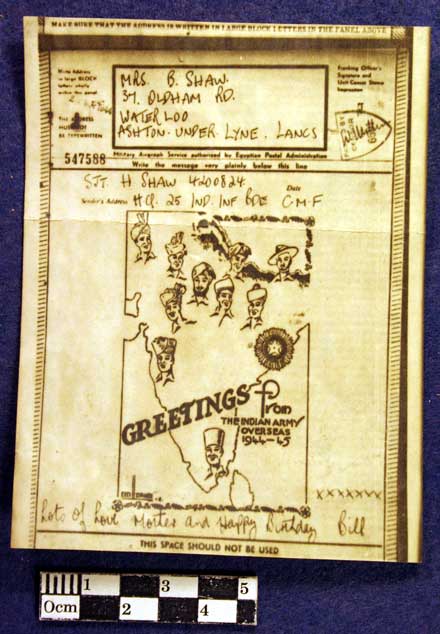 MAKE SURE THAT THE ADDRESS IS WRITTEN IN LARGE BLOCK LETTERS IN THE PANEL ABOVE
Write Address
in large BLOCK
letters wholly
within this panel
THE ADDRESS
MUST NOT
BE TYPEWRITTEN
MRS. B. SHAW.
37. OLDHAM RD.
WATERLOO
ASHTON. UNDER. LYNE. LANCS
Franking Officer's
Signature and
Unit Censor Stamp
Impression
547588
Military Airgraph Service authorised by Egyptian Postal Administration
Write the message very plainly below this line
SJT. H. SHAW 4200824.
Date
Sender's Address HQ. 25 IND. INF BDE C.M.F
GREETINGS from
THE INDIAN ARMY
OVERSEAS
1944-45
xxxxxxx
Lots of Love Mother and Happy Birthday Bill
THIS SPACE SHOULD NOT BE USED
0cm 1 2 3 4 5